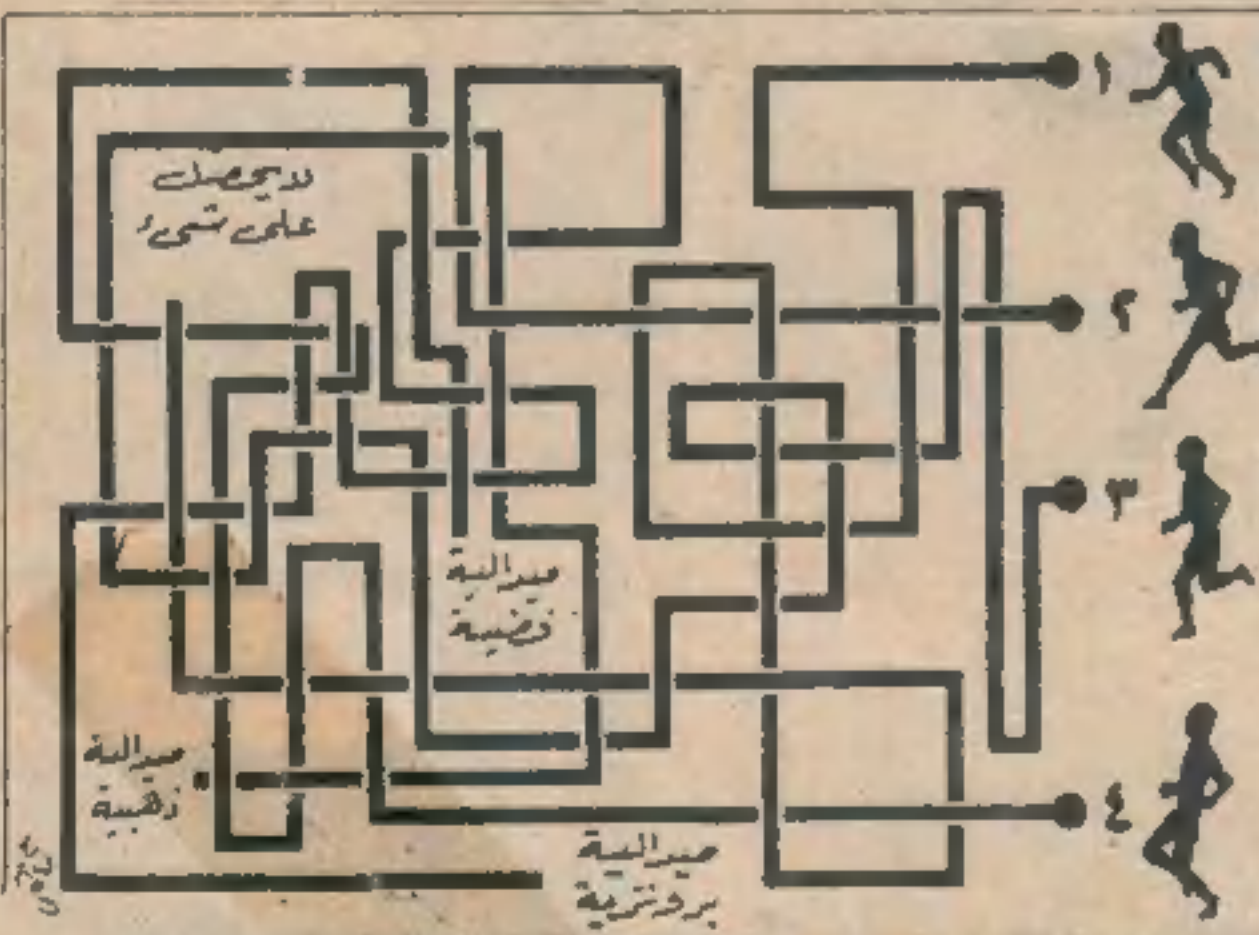 ١
لا يحصل
على شيء
٢
٣
ميدالية
فضية
ميدالية
ذهبية
٤
ميدالية
برونزية